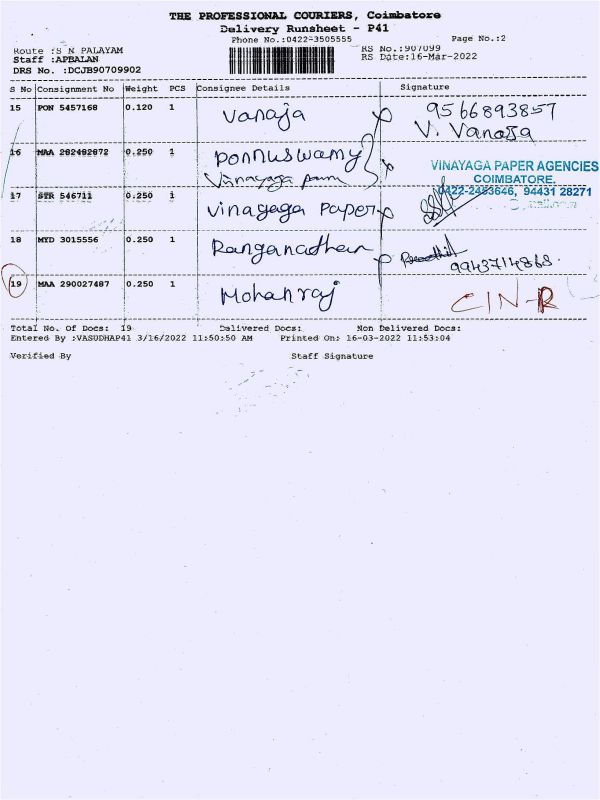 THE PROFESSIONAL COURIERS, Coimbatore
Delivery Runsheet - P41
Phone No.:0422-3505555
Page No.:2
Route :S N PALAYAM
RS No.:907099
Staff :APBALAN
RS Date:16-Mar-2022
DRS No. :DCJB90709902
S No Consignment No Weight PCS Consignee Details Signature
15 PON 5457168 0.120 1 Vanaja 9566893857
V. Vanaja
16 MAA 282482872 0.250 1 Ponnuswamy
Vinayaga
VINAYAGA PAPER AGENCIES
COIMBATORE.
0422-2453646, 94431 28271
17 STR 546711 0.250 1 Vinayaga Paper
18 MYD 3015556 0.250 1 Ranganathan
9943714868.
19 MAA 290027487 0.250 1 Mohanraj CIN-R
Total No. Of Docs: 19 Dalivered Docs: Non Delivered Docs:
Entered By :VASUDHAP41 3/16/2022 11:50:50 AM Printed On: 16-03-2022 11:53:04
Verified By Staff Signature